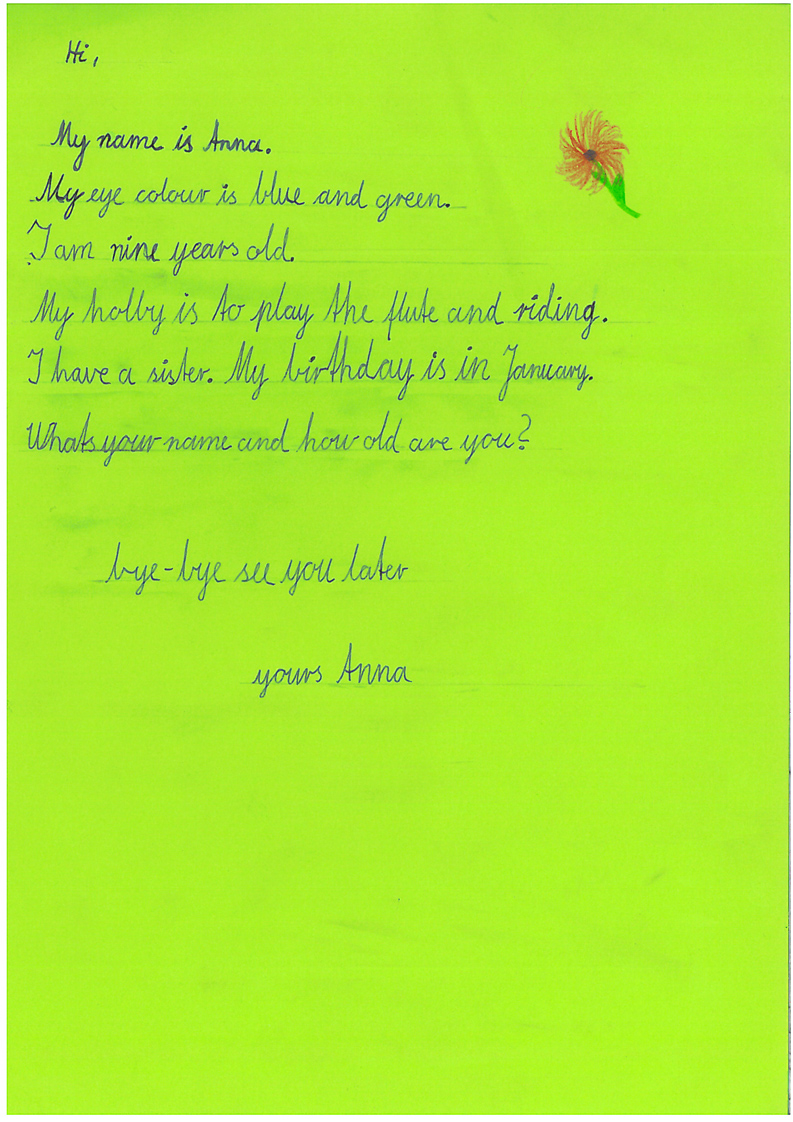 Hi,
My name is Anna.
My eye colour is blue and green.
I am nine years old.
My hobby is to play the flute and riding.
I have a sister. My birthday is in January.
Whats your name and how old are you?
bye-bye see you later
yours Anna